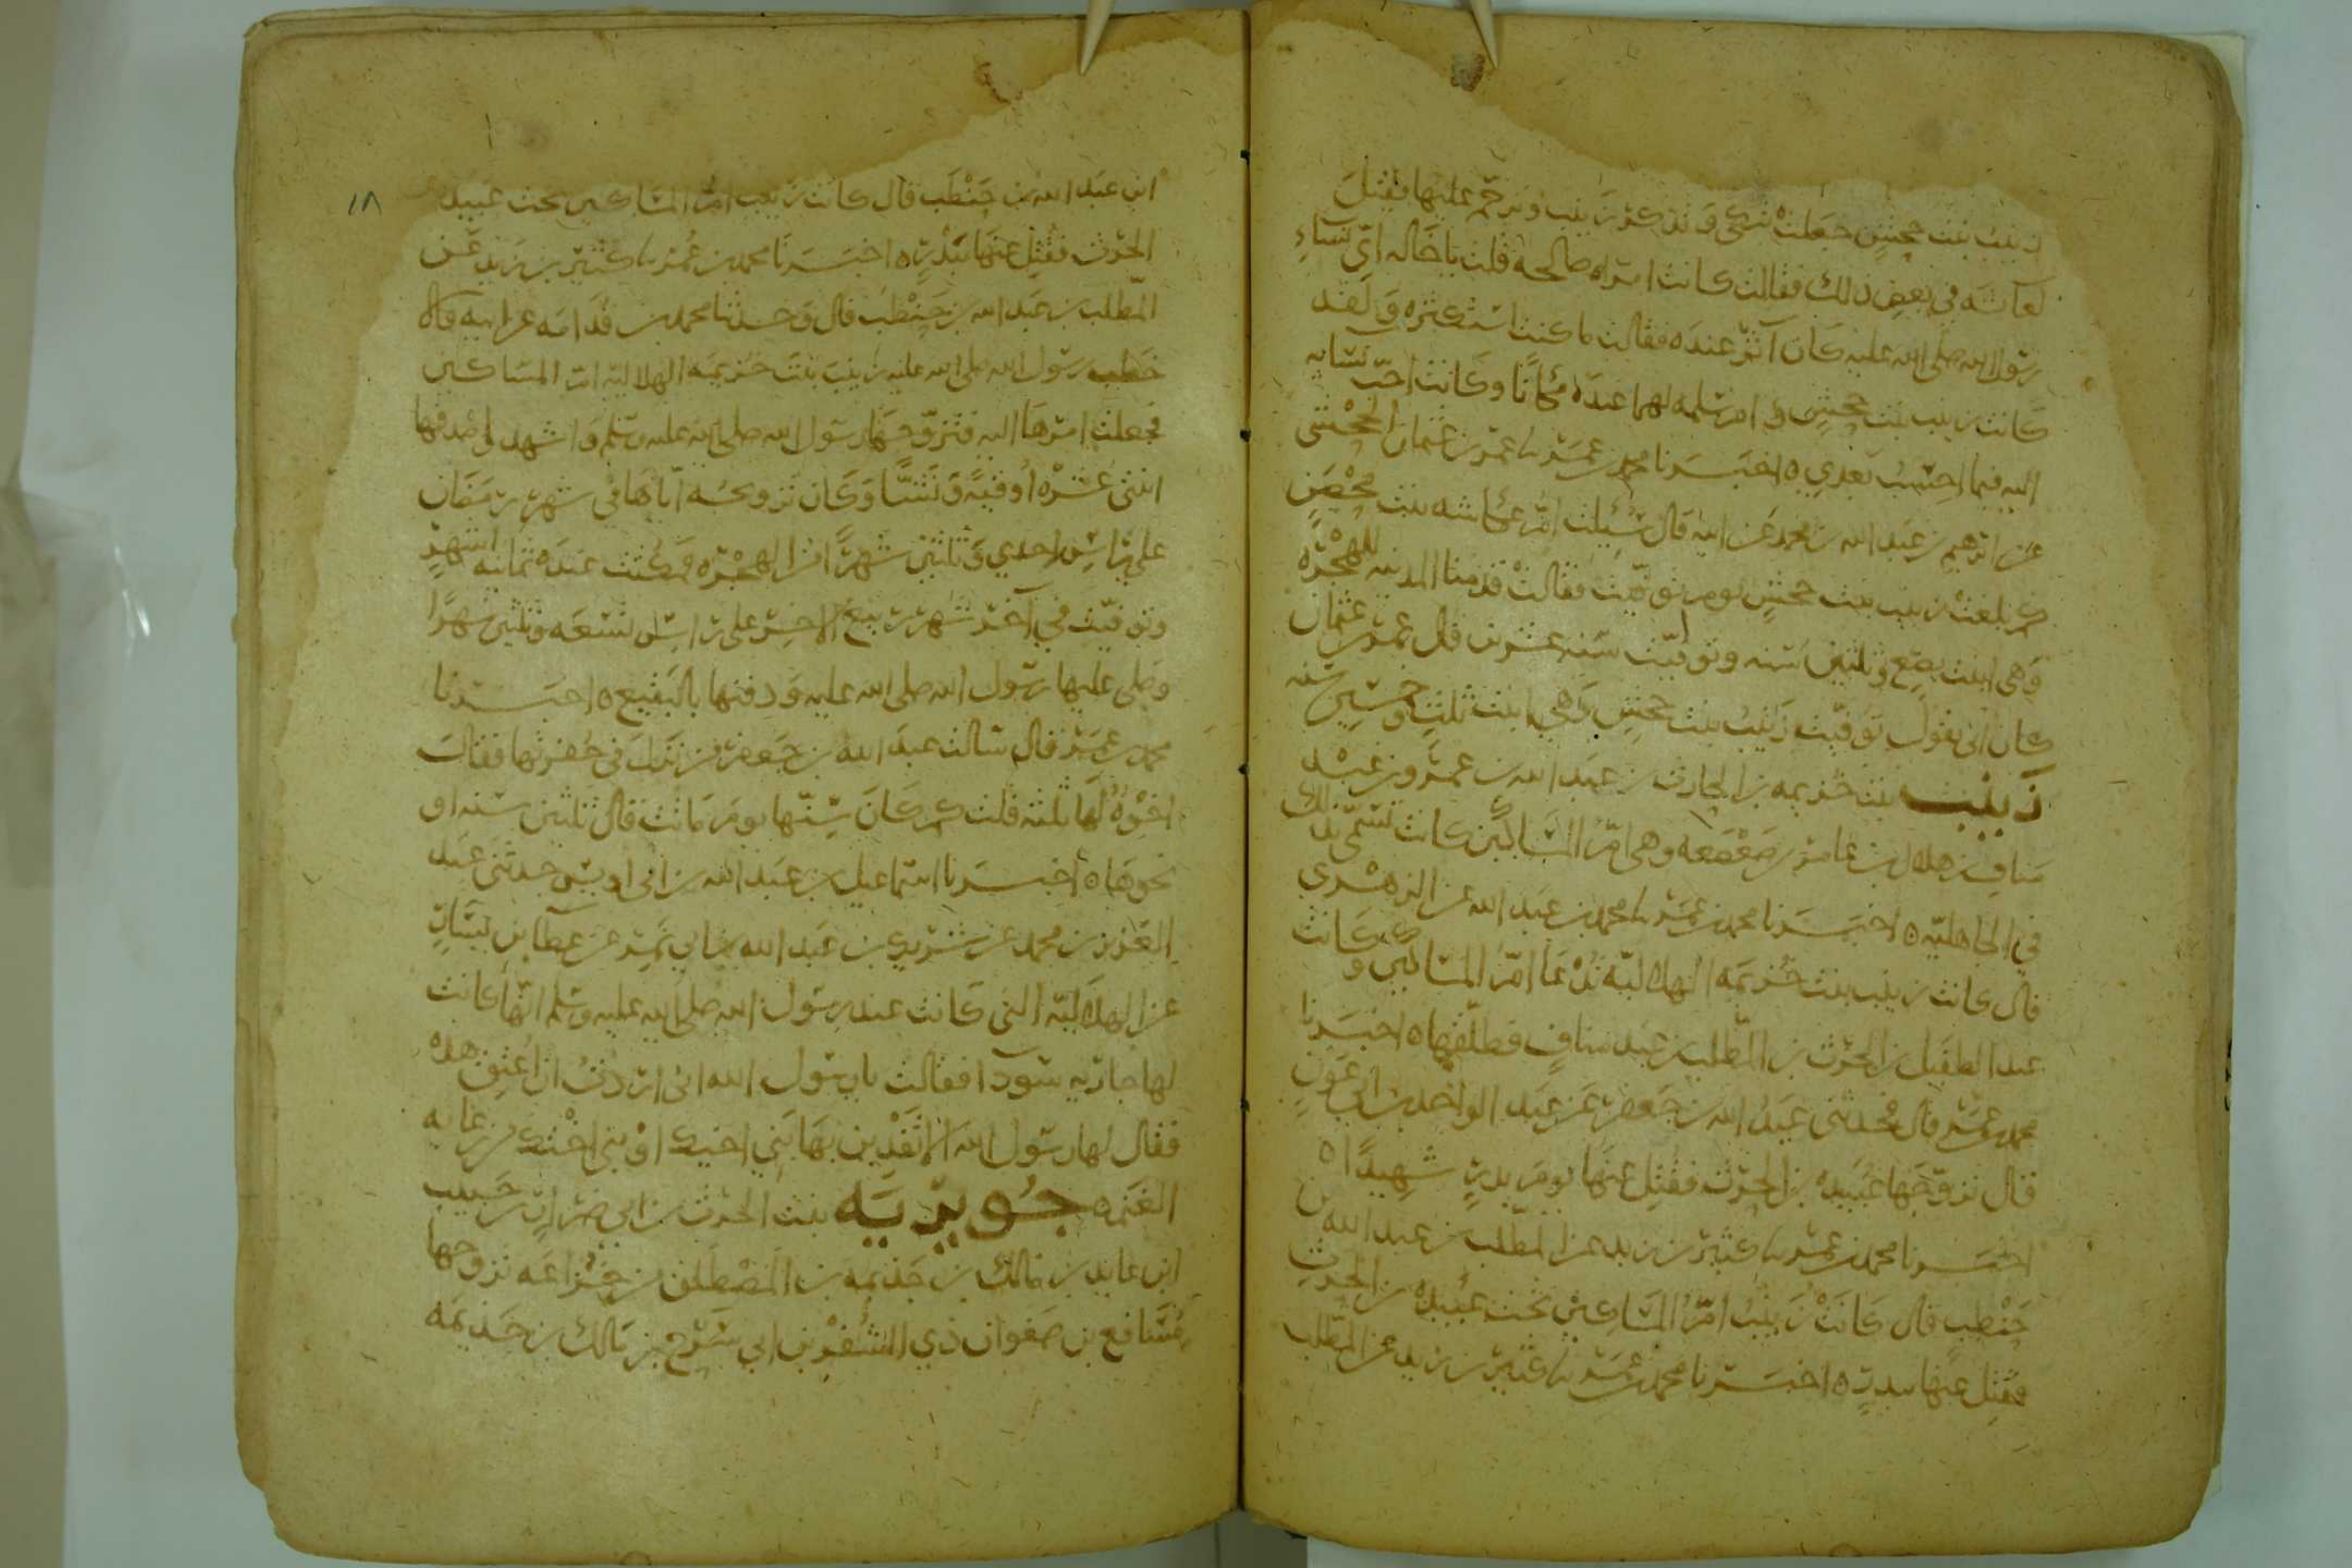 زينب بنت جحش جعلت تبكي وتذكر زينب وترحم عليها فقيل
لعائشه في بعض ذلك فقالت كانت امراه صالحه قلت ياخاله اي نساء
رسول الله صلى الله عليه كان آثر عنده فقالت ما كنت استكثره ولقد
كانت زينب بنت جحش و ام سلمه لهما عنده مكانا وكانت احب نسايه
اليه فيما احسب بعدي ه اخبرنا محمد بن عمر نا عمر بن عثمان الجحشي
عن ابرهيم بن عبد الله بن محمد عن ابيه قال سئلت ام عكاشه بنت محصن
كم بلغت زينب بنت جحش يوم توفيت فقالت قدمنا المدينه للهجره
وهي ابنت بضع وثلثين سنه وتوفيت سنه عشرين قال عمر بن عثمان
كان ابي يقول توفيت زينب بنت جحش وهي ابنت ثلث وخمسين سنه
زينب بنت خزيمه بن الحارث بن عبد الله بن عمرو بن عبد
مناف بن هلال بن عامر بن صعصعه وهي ام المساكين كانت تسمى بذلك
في الجاهليه ه اخبرنا محمد بن عمر نا محمد بن عبد الله عن الزهري
قال كانت زينب بنت خزيمه الهلاليه تدعا ام المساكين وكانت
عند الطفيل بن الحرث بن المطلب بن عبد مناف فطلقها ه اخبرنا
محمد بن عمر قال حدثني عبد الله بن جعفر عن عبد الواحد بن ابي عون
قال تزوجها عبيده بن الحرث فقتل عنها يوم بدر شهيدا ه
اخبرنا محمد بن عمر نا كثير بن زيد عن المطلب بن عبد الله بن
حنطب قال كانت زينب ام المساكين تحت عبيده بن الحرث
فقتل عنها ببدر ه اخبرنا محمد بن عمر نا كثير بن زيد عن المطلب
١٨
ابن عبد الله بن حنطب قال كانت زينب ام المساكين تحت عبيده
الحرث فقتل عنها ببدر ه اخبرنا محمد بن عمر نا كثير بن زيد عن
المطلب بن عبد الله بن حنطب قال وحدثنا محمد بن قدامه عن ابيه قالا
خطب رسول الله صلى الله عليه زينب بنت خزيمه الهلاليه ام المساكين
فجعلت امرها اليه فتزوجها رسول الله صلى الله عليه وسلم واشهد واصدقها
اثنتي عشره اوقيه ونشا وكان تزويجه اياها في شهر رمضان
على راس احدي وثلثين شهرا من الهجره فمكثت عنده ثمانيه اشهر
وتوفيت في آخر شهر ربيع الاخر على راس تسعه وثلثين شهرا
وصلى عليها رسول الله صلى الله عليه ودفنها بالبقيع ه اخبرنا
محمد بن عمر قال سالت عبد الله بن جعفر من نزل في حفرتها فقال
اخوه لها ثلثه قلت كم كان سنها يوم ماتت قال ثلثين سنه او
نحوها ه اخبرنا اسماعيل بن عبد الله بن ابي اويس حدثني عبد
العزيز بن محمد عن شريك بن عبد الله بن ابي نمر عن عطا بن يسار
عن الهلاليه التي كانت عند رسول الله صلى الله عليه وسلم انها كانت
لها جاريه سودا فقالت يا رسول الله اني اردت ان اعتق هذه
فقال لها رسول الله الا تفدين بها بني اخيك او بني اختك من رعايه
الغنم ه جويريه بنت الحرث بن ابي ضرار بن حبيب
ابن عايد بن مالك بن جذيمه بن المصطلق بن خزاعه تزوجها
مسافع بن صفوان ذي الشفر بن ابي سرح بن مالك بن جذيمه